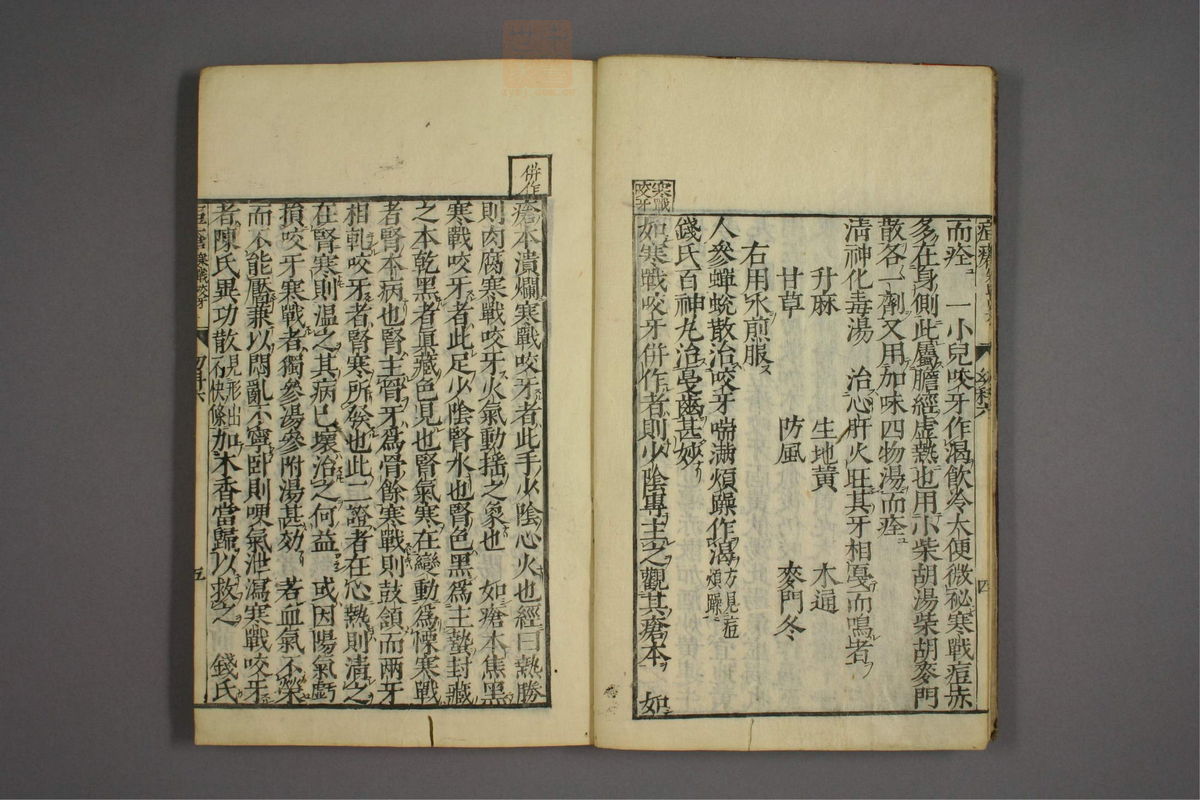 而痊 一小兒咬牙作渴飲冷大便微祕寒戰痘赤
多在身側此屬膽經虛熱也用小柴胡湯柴胡麥門
散各一劑又用加味四物湯而痊
淸神化毒湯 治心肝火旺其牙相戞而鳴者
升麻 生地黃 木通
甘草 防風 麥門冬
右用水煎服
人參蟬蛻散治咬牙喘滿煩躁作渴方見痘煩躁
錢氏百神丸治齒甚妙
寒戰咬牙
如寒戰咬牙併作者則少陰專主之觀其瘡本 如
四
併作
瘡本潰爛寒戰咬牙者此手少陰心火也經曰熱勝
則肉腐寒戰咬牙火氣動搖之象也 如瘡本焦黑
寒戰咬牙者此足少陰腎水也腎色黑爲主蟄封藏
之本乾黑者眞藏色見也腎氣寒在變動爲慄寒戰
者腎本病也腎主骨牙爲骨餘寒戰則鼓頷而兩牙
相軋咬牙者腎寒所發也此二證者在心熱則淸之
在腎寒則温之其病已壞治之何益 或因陽氣虧
損咬牙寒戰者獨參湯參附湯甚効 若血氣不榮
而不能靨兼以悶亂不寧臥則哽氣泄瀉寒戰咬牙
者陳氏異功散見形出不快條加木香當歸以救之 錢氏
寒戰咬牙
五